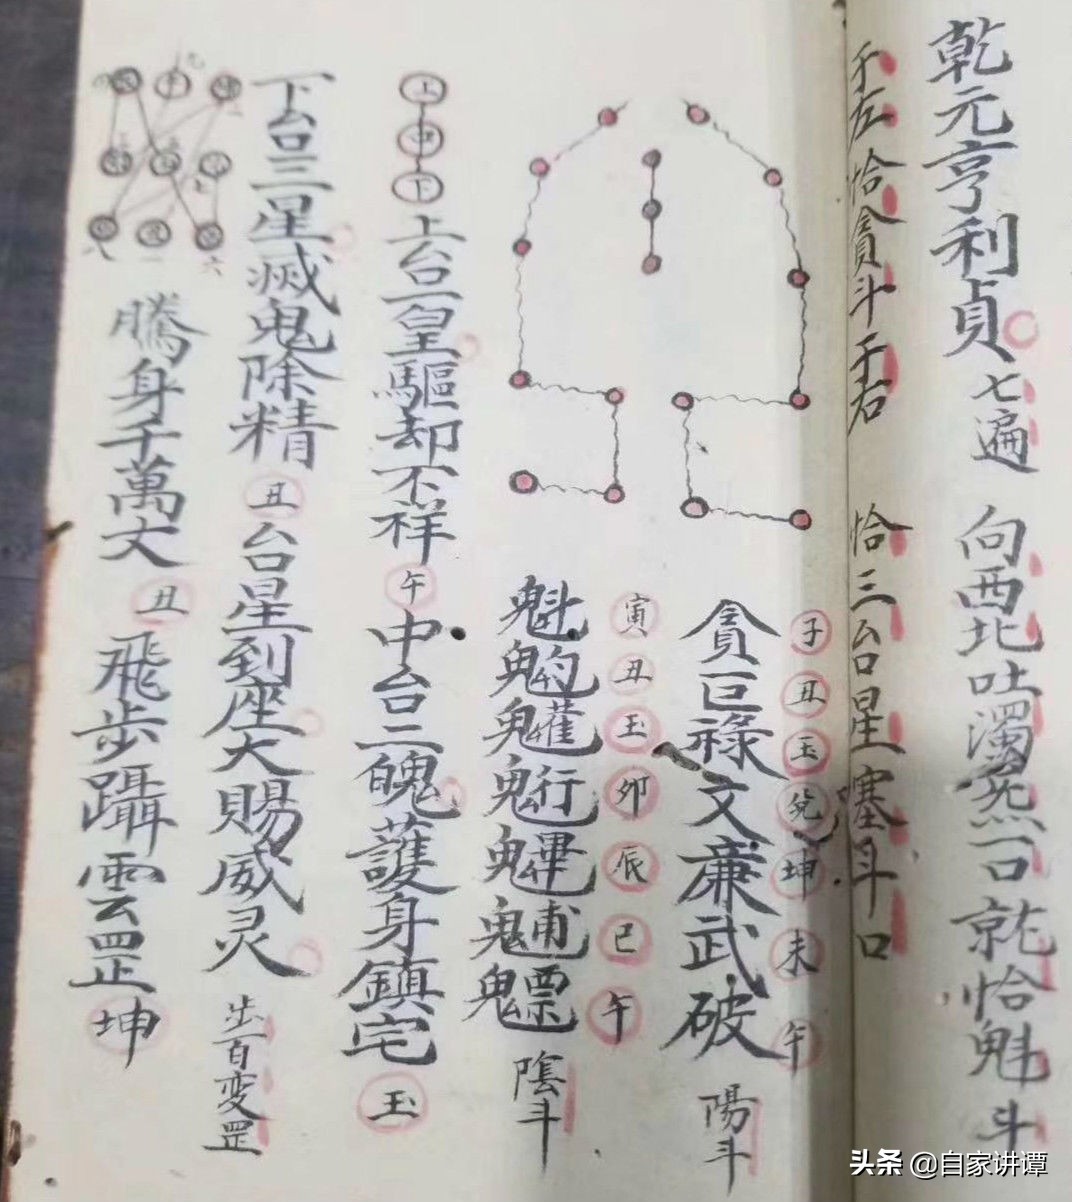 乾元亨利貞 七遍 向西北吐濁炁一口 就恰魁斗
于左 恰貪斗于右 恰三台星塞斗口
子 丑 玉 兌 坤 未 午
貪巨祿文廉武破 陽斗
寅 丑 玉 卯 辰 巳 午
魁魓 陰斗
上 中 下
上台一皇驅却不祥 午 中台二魄護身鎮宅 玉
下台三星滅鬼除精 丑 台星到座大賜威灵 步百变罡
騰身千萬丈 丑 飛步躡雲罡 坤
八 一 六
头条 @自家讲谭